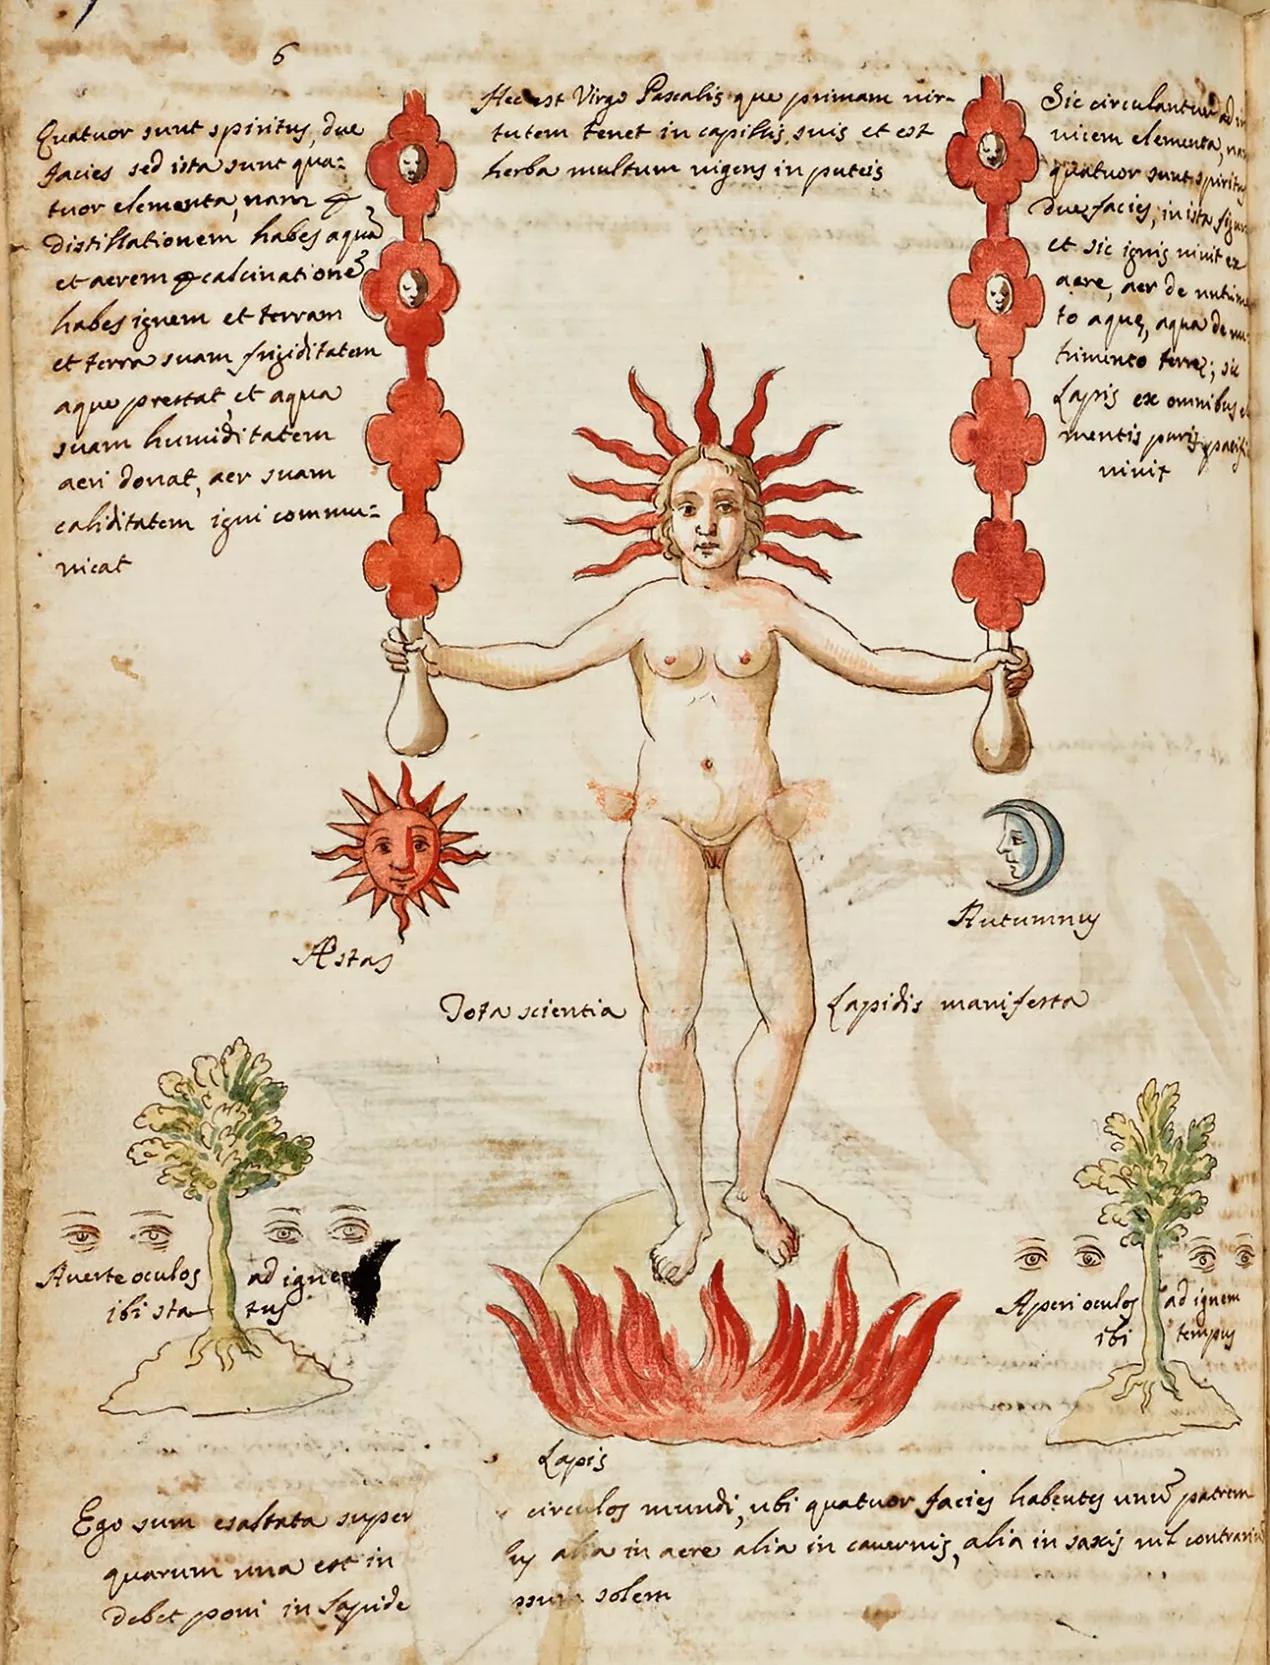 6
Quatuor sunt spiritus, due
facies sed ista sunt qua=
tuor elementa, nam ꝑ
distillationem habes aquã
et aerem ꝑ calcinationẽ
habes ignem et terram
et terra suam frigiditatem
aque prestat, et aqua
suam humiditatem
aeri donat, aer suam
caliditatem igni commu=
nicat
Hec est Virgo Pascalis que primam vir-
tutem tenet in capillis suis et est
herba multum vigens in puteis
Sic circulantur ad in
vicem elementa, nam
quatuor sunt spiritus
due facies, in ista figura
et sic ignis vivit ex
aere, aer de nutrimen
to aque, aqua de nu
trimento terre; sic
Lapis ex omnibus
mentis puris
vivit
Æstas
Autumnus
Tota scientia
Lapidis manifesta
Averte oculos ad igne
ibi sta tus
Aperi oculos ad ignem
ibi tempus
Lapis
Ego sum exaltata super circulos mundi, ubi quatuor facies habentes unũ patrem
quarum una est in alia in aere alia in cavernis, alia in saxis vil
debet poni in lapide solem